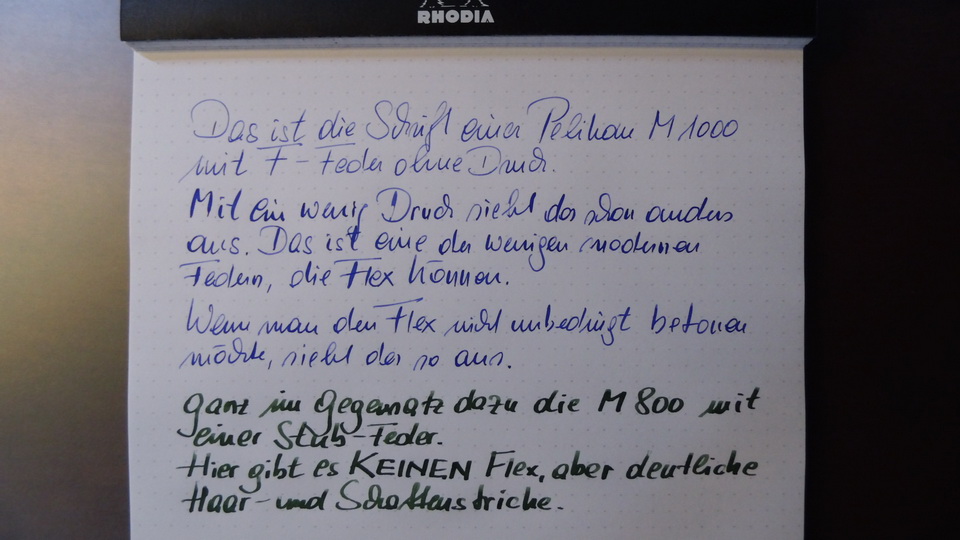 RHODIA
Das ist die Schrift einer Pelikan M 1000
mit F-Feder ohne Druck.
Mit ein wenig Druck sieht das schon anders
aus. Das ist eine der wenigen modernen
Federn, die Flex können.
Wenn man den Flex nicht unbedingt betonen
möchte, sieht das so aus.
ganz im Gegensatz dazu die M 800 mit
einer Stub-Feder.
Hier gibt es KEINEN Flex, aber deutliche
Haar- und Schattenstriche.